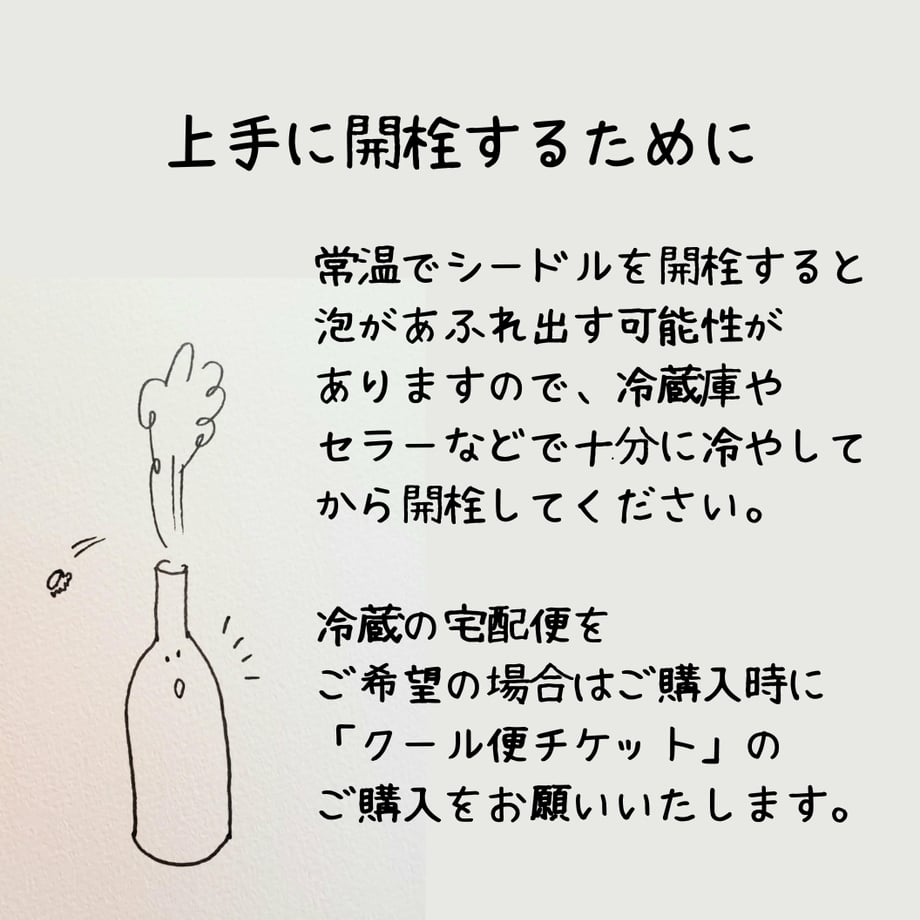 上手に開栓するために
常温でシードルを開栓すると
泡があふれ出す可能性が
ありますので、冷蔵庫や
セラーなどで十分に冷やして
から開栓してください。
冷蔵の宅配便を
ご希望の場合はご購入時に
「クール便チケット」の
ご購入をお願いいたします。